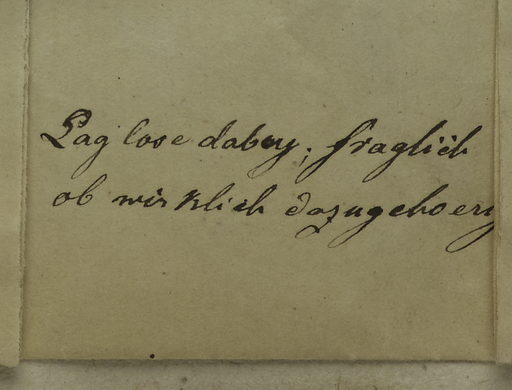 Lag lose dabey; fraglich
ob wirklich dazugehoerig